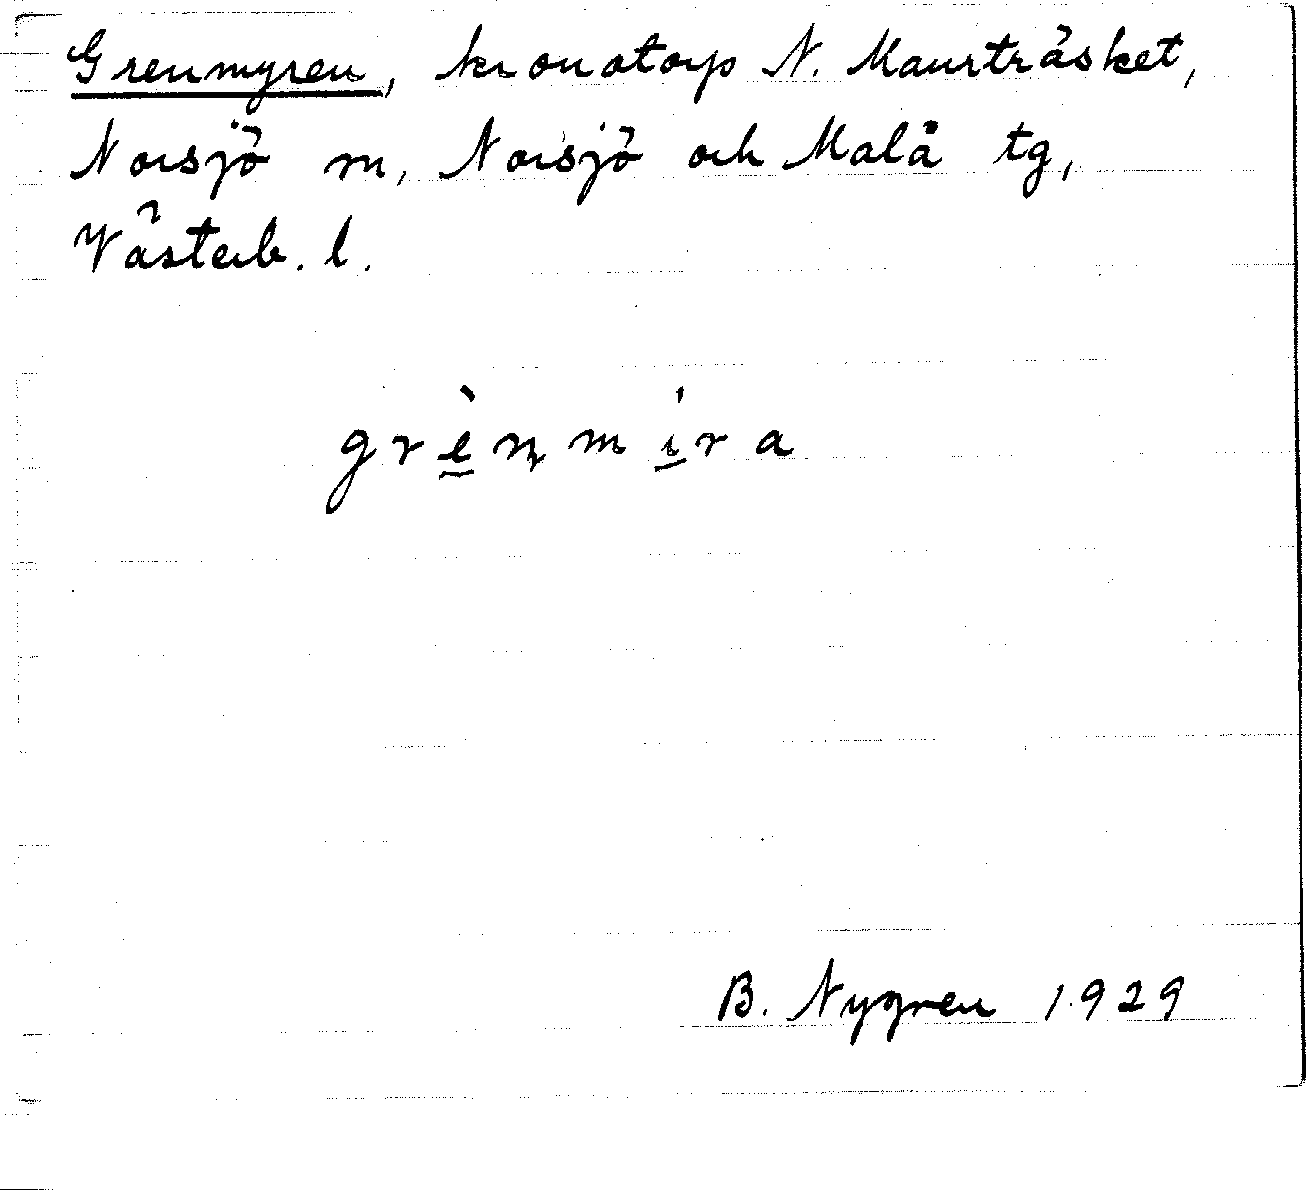 Grenmyren, kronotorp N. Maurträsket,
Norsjö sn, Norsjö och Malå tg,
Västerb. l.
grènmíra
B. Nygren 1929